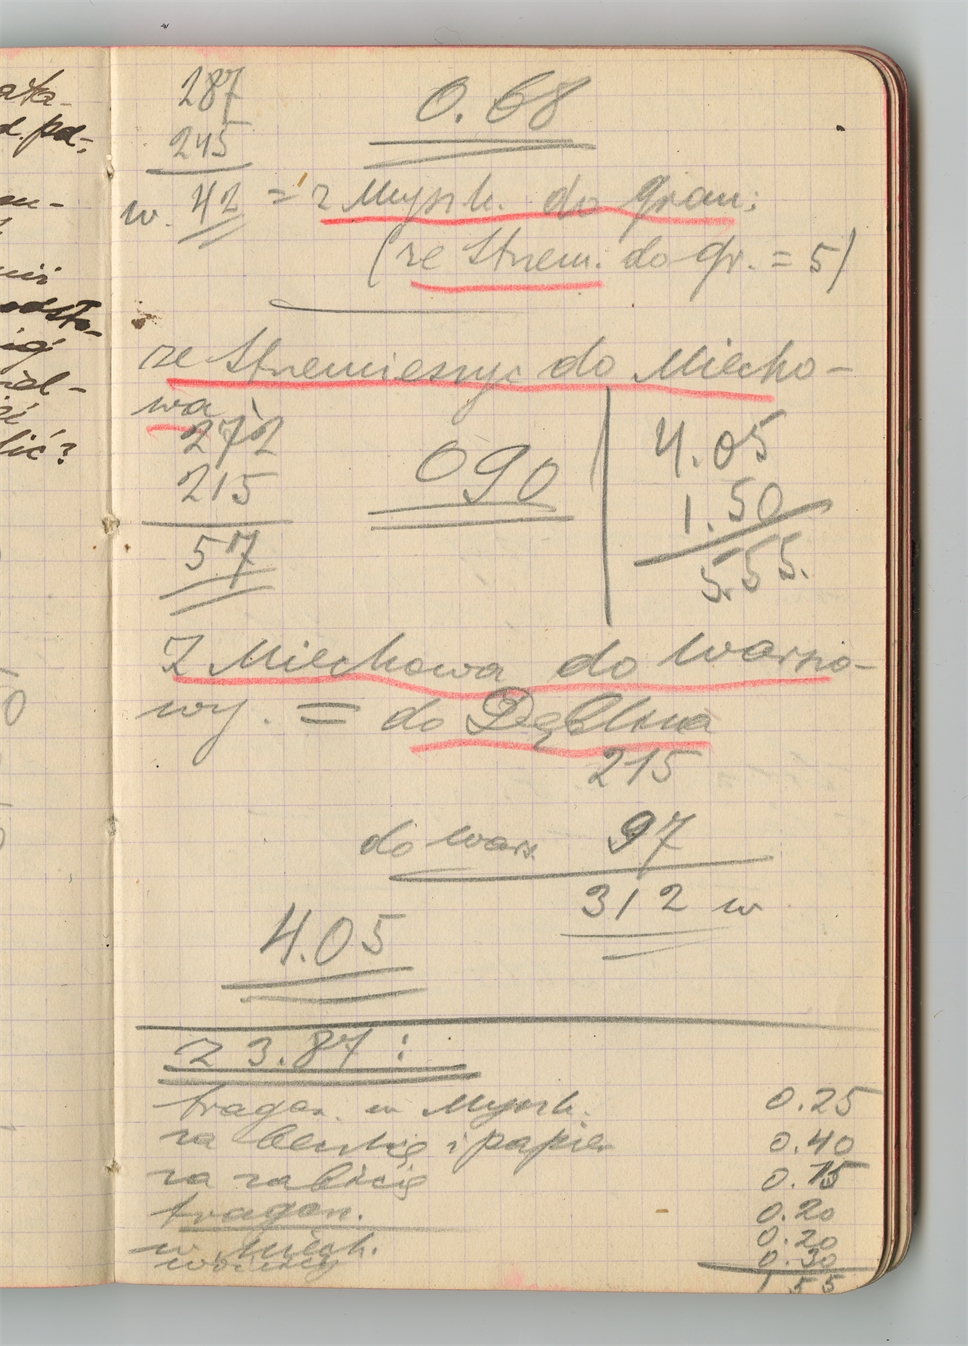 ałka-
d. pd-,
287
0.68
245
w. 42 = z Myszk. do Gran;
(ze Strzem. do gr. = 5)
ze Strzemieszyc do Miecho-
wa
272
215
57
090
4.05
1.50
5.55.
Z Miechowa do Warszo-
wy. = do Dęblina
215
do Wars. 97
312 w
4.05
Z 3.87 :
tragaż. w Myszk. 0.25
za i papier 0.40
za zabicie 0.15
tragaż. 0.20
w Miech. 0.20
0.30
1 55